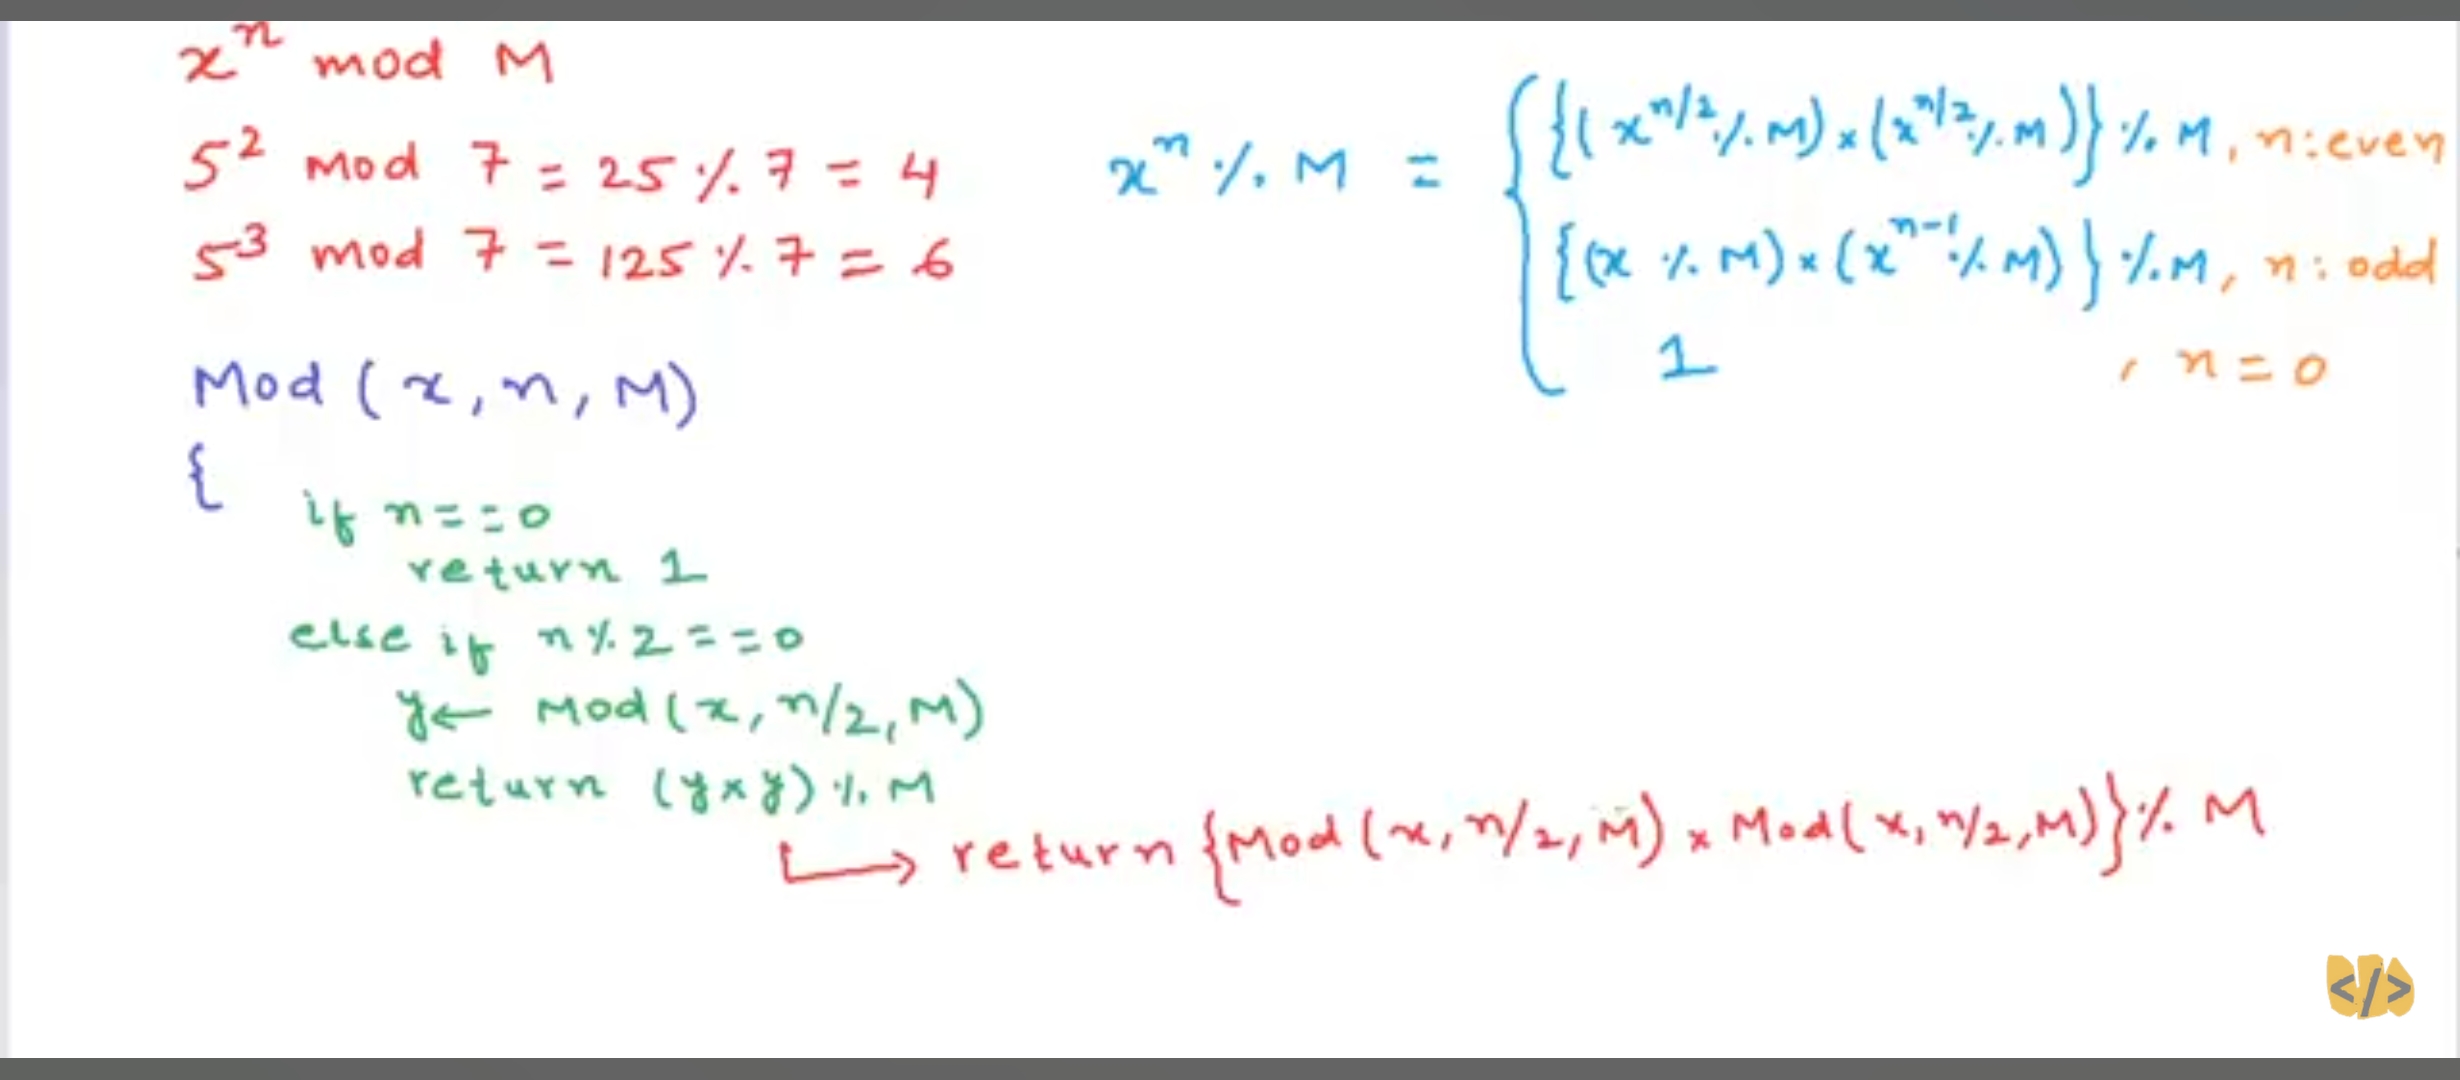 xⁿ mod M
5² mod 7 = 25 % 7 = 4
5³ mod 7 = 125 % 7 = 6
xⁿ % M = { {(x^(n/2) % M) × (x^(n/2) % M)} % M, n: even
{(x % M) × (x^(n-1) % M)} % M, n: odd
1 , n = 0
Mod (x, n, M)
{
if n == 0
return 1
else if n % 2 == 0
y ← Mod (x, n/2, M)
return (y × y) % M
↳ return {Mod (x, n/2, M) × Mod (x, n/2, M)} % M
</>